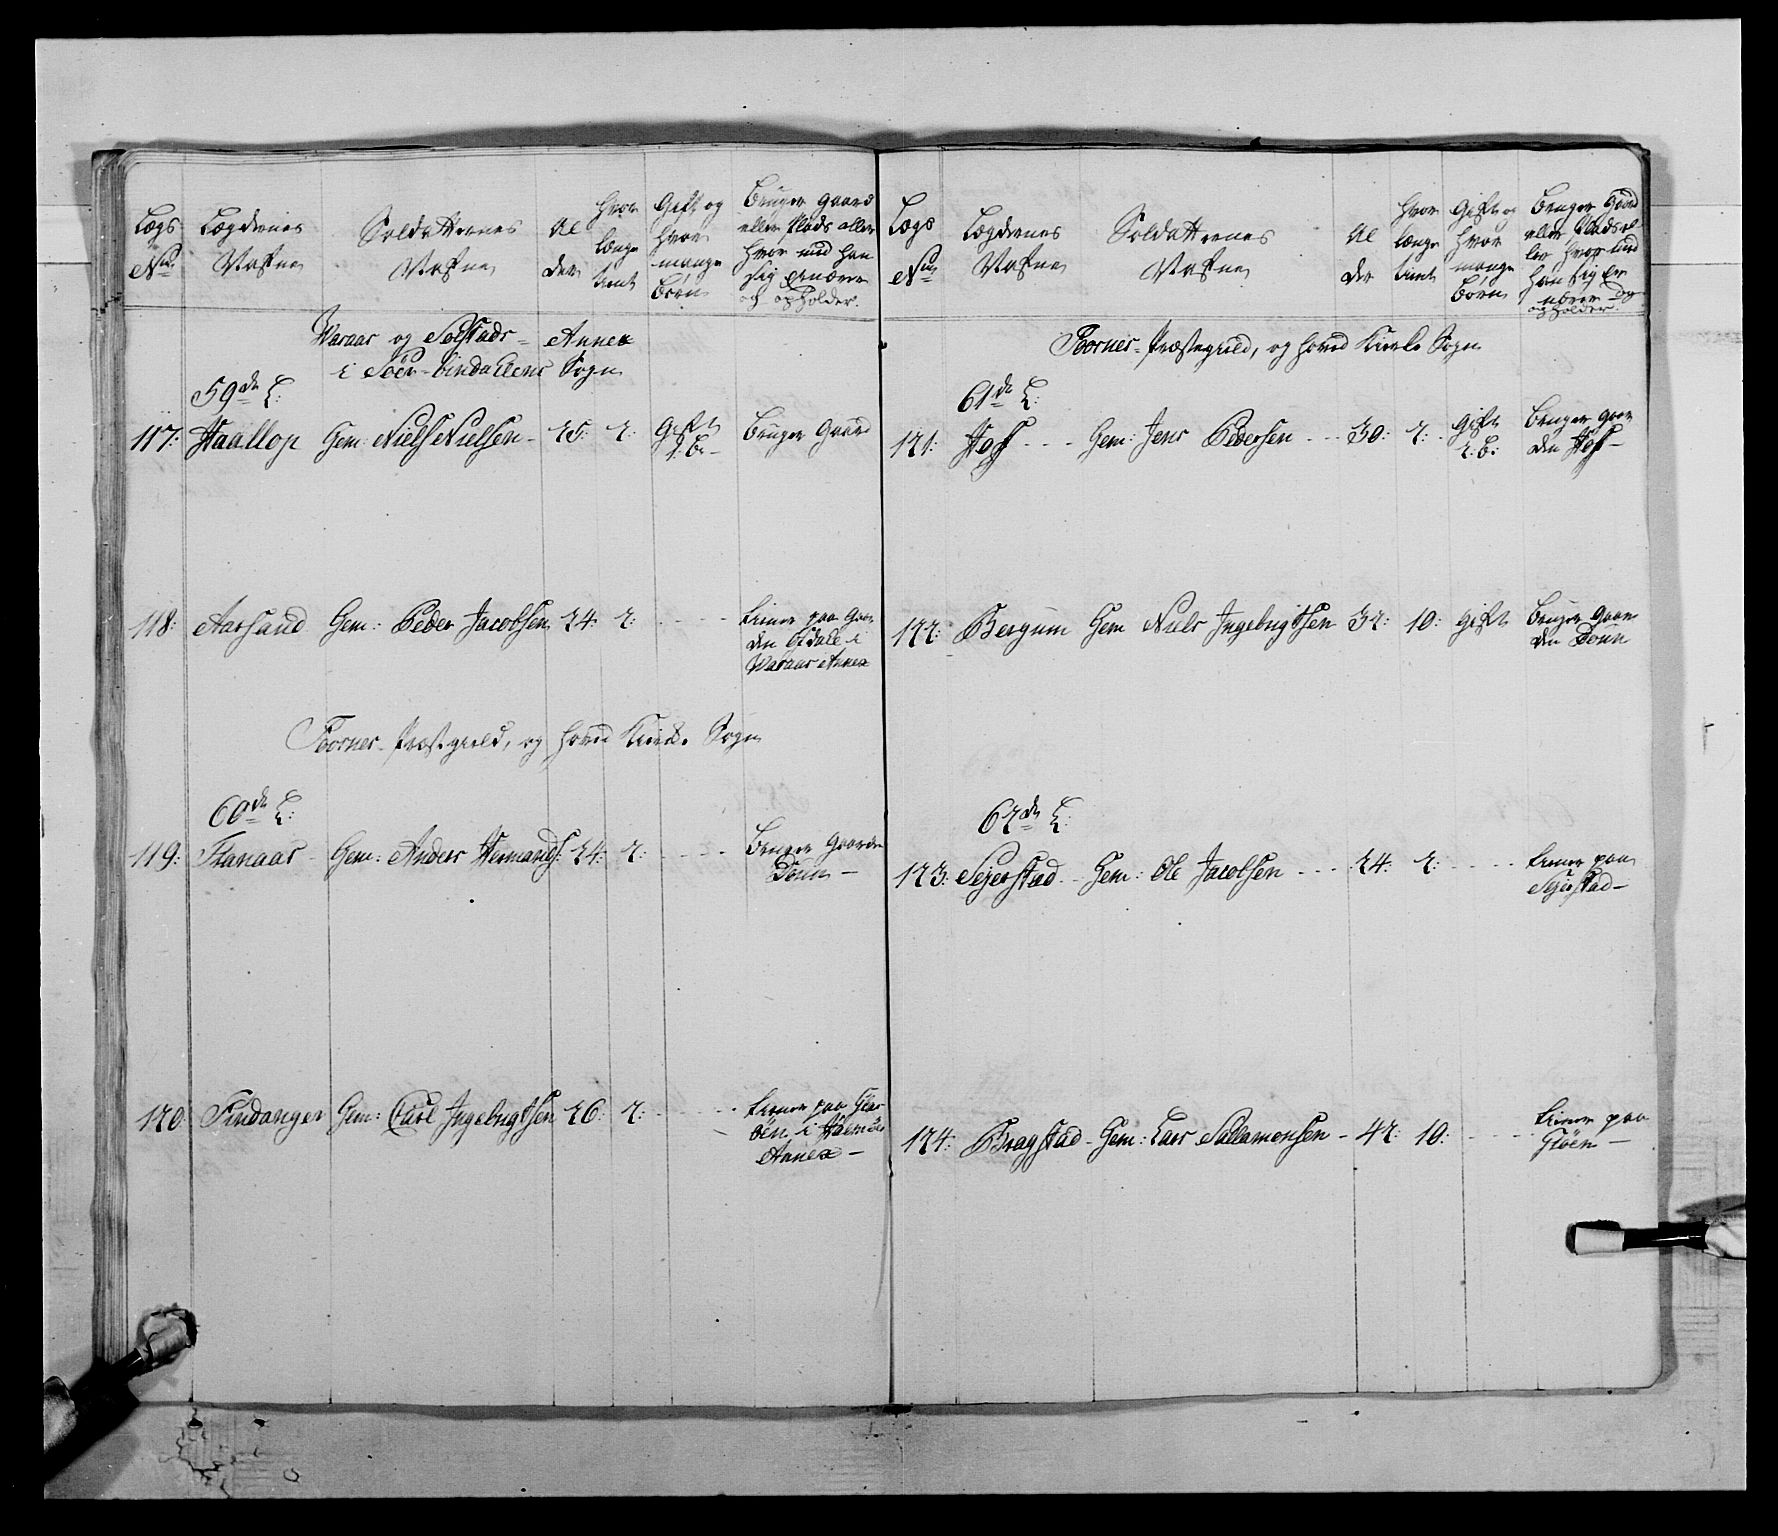 Lægs
No
Lægdernes
Nafne
Soldatternes
Nafne
Al
der
Hvor
længe
tient
Gift og
hvor
mange
Børn
Bruger Gaard
eller Plads eller
hvor ved han
sig ernærer
og opholder.
Waraas og Solstads - Annex
i Söer-bindallens Sogn
59de L:
117: Haallop Gem: Niels Nielsen - 25: 2: Gift 1. B. - Bruger Gaard
118: Aarsand Gem: Peder Jacobsen 24: 2: - - - - tiener paa Gaar
den i
Waraas Annex
Foornes - Præstegield, og hoved Kirke Sogn
60de L:
119: Flanaas - Gem: Anders Hermands: 24: 2: - - - - Bruger Gaarden
Donn -
120: Tindanger Gem: Carl Ingebrigtsen 26: 2: - - - - tiener paa
i
Annex -
Lægs
No
Lægdernes
Nafne
Soldatternes
Nafne
Al
der
Hvor
længe
tient
Gift og
hvor
mange
Børn
Bruger Gaard
eller Plads el-
ler hvor ved
han sig er
nærer og
opholder.
Foornes - Præstegield, og hoved Kirke Sogn
61de L:
121: Hoff - - - Gem: Jens Pedersen - - - 30: 2: Gift 2: B: Bruger Gaar
den Hoff -
122: Bergum Gem Niels Ingebrigtsen 32: 10: Gift Bruger Gaar
den Donn
62de L:
123: Sejerstad - - Gem: Ole Jacobsen - - - 24: 2: - - - - tiener paa
Sejerstad -
124: Bragstad - Gem: Lars Sallamonsen - 42: 10: - - - - tiener paa
Gløen -